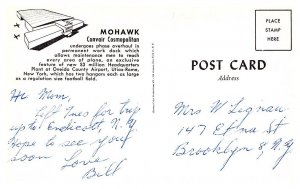 MOHAWK
Convair Cosmopolitan
undergoes phase overhaul in
permanent work dock which
allows maintenance men to reach
every area of plane, an exclusive
feature of new $3 million Headquarters
Plant at Oneida County Airport, Utica-Rome,
New York, which has two hangars each as large
as a regulation size football field.
Hi Mom,
Left Ines for trip
up to Endicott, N.Y.
Hope to see you
soon
Love
Bill
PLACE
STAMP
HERE
POST CARD
Address
Mrs W Legnau
147 Etna St
Brooklyn 8, N.Y.